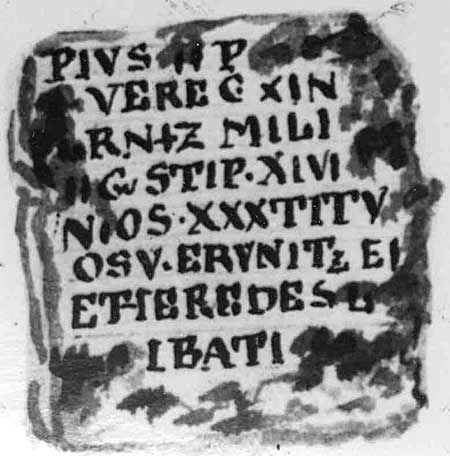 PIVS II P
VERE G XIN
RN+Z MILI
STIP·XIVI
NIOS·XXXTITV
OSV·ERVNITZ EI
ETHEREDES L
IBATI